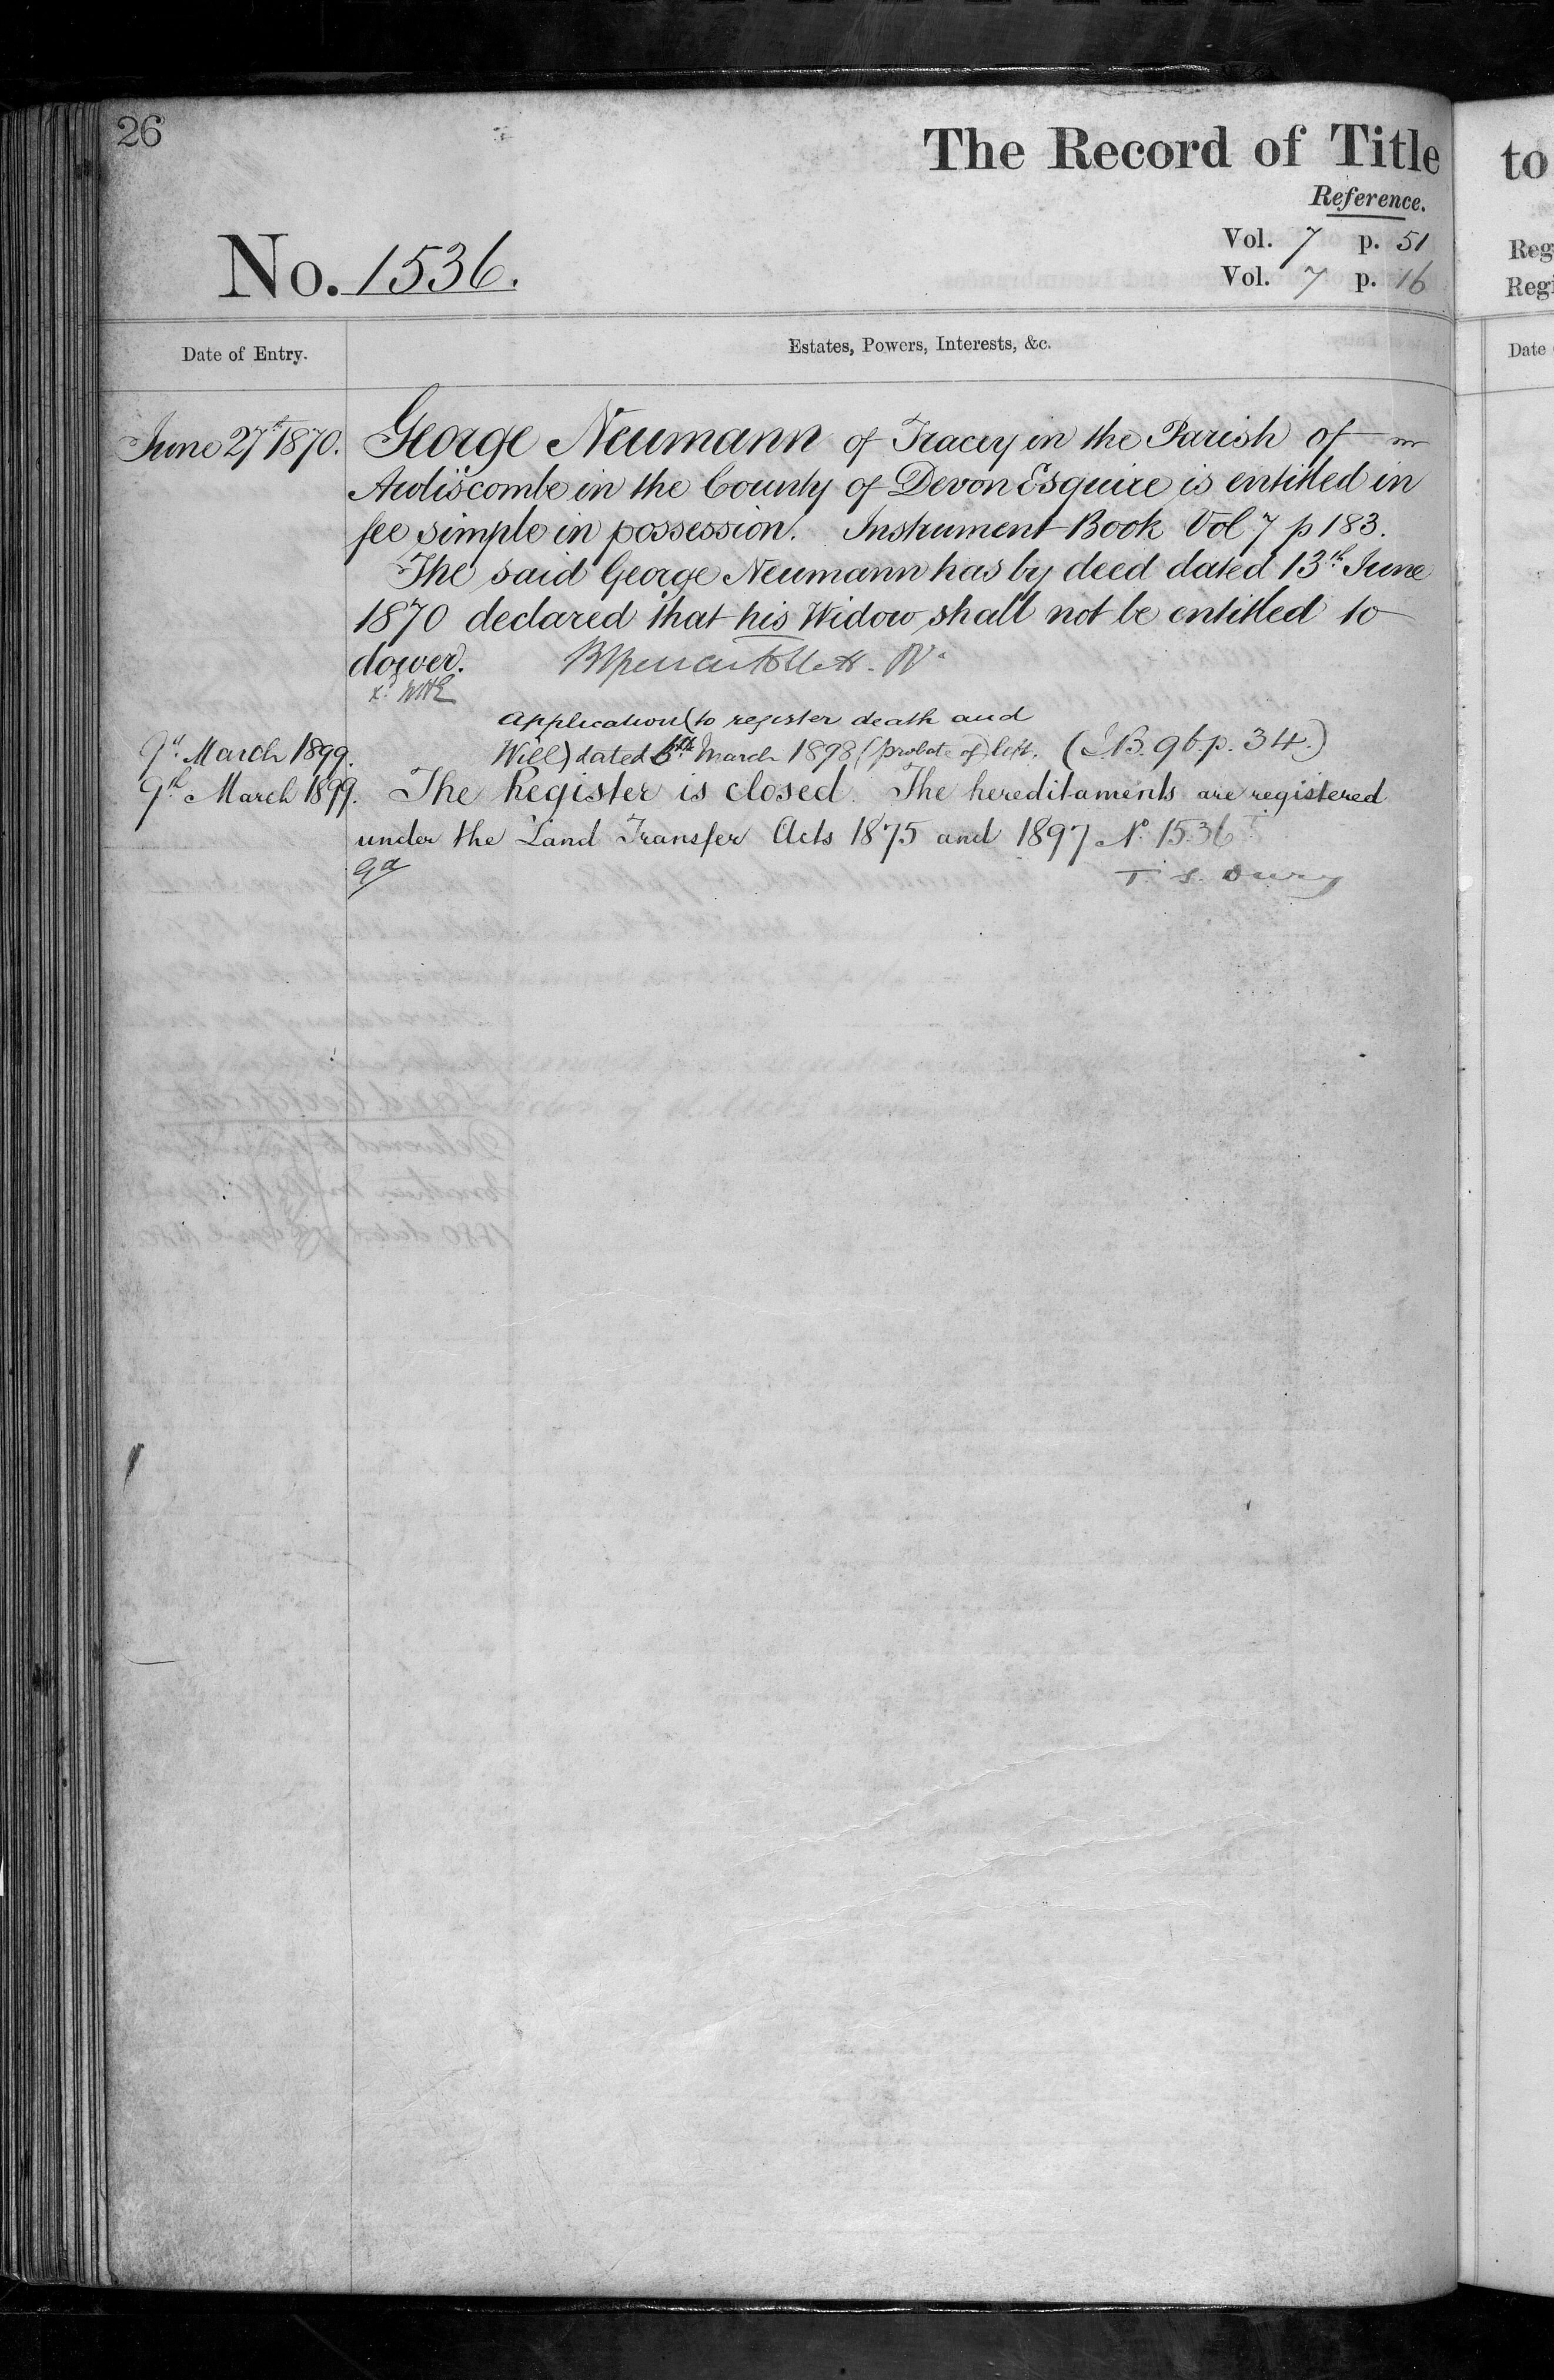 26
The Record of Title
Reference.
Vol. 7 p. 51
No. 1536.
Vol. 7 p. 16
Date of Entry.
Estates, Powers, Interests, &c.
June 27th 1870. George Neumann of Tracey in the Parish of
Awliscombe in the County of Devon Esquire is entitled in
fee simple in possession. Instrument Book Vol 7 p 183.
The said George Neumann has by deed dated 13th June
1870 declared that his Widow shall not be entitled to
dower.
Application (to register death and
9th March 1899. Will) dated 6th March 1898 (probate of) left. (I.B. 96. p. 34.)
9th March 1899. The Register is closed. The hereditaments are registered
under the Land Transfer Acts 1875 and 1897 No. 1536
to
Reg
Regi
Date